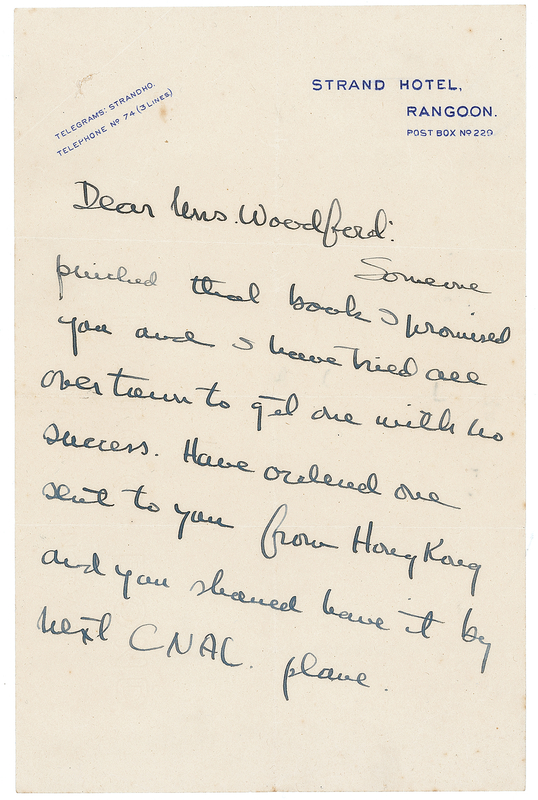 TELEGRAMS: STRANDHO.
TELEPHONE Nº 74 (3 LINES)
STRAND HOTEL,
RANGOON.
POST BOX Nº 229
Dear Mrs. Woodford:
Someone
pinched that book I promised
you and I have tried all
over town to get one with no
success. Have ordered one
sent to you from Hong Kong
and you should have it by
next CNAC. plane.